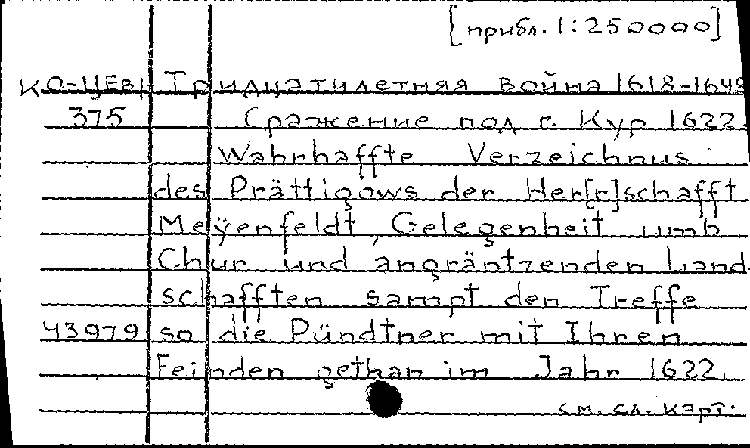 [прибл. 1:250000]
КО-ЦЕВ/ Тридцатилетняя война 1618-1648
375 Сражение под г. Кур 1622.
Wahrhaffte Verzeichnus
des Prättigows der Her[r]schafft
Meÿenfeldt, Gelegenheit umb
Chur und angräntzenden Land
schafften sampt den Treffe
43979 so die Pündtner mit Ihren
Feinden gethan im Jahr 1622.
см. сл. карт.